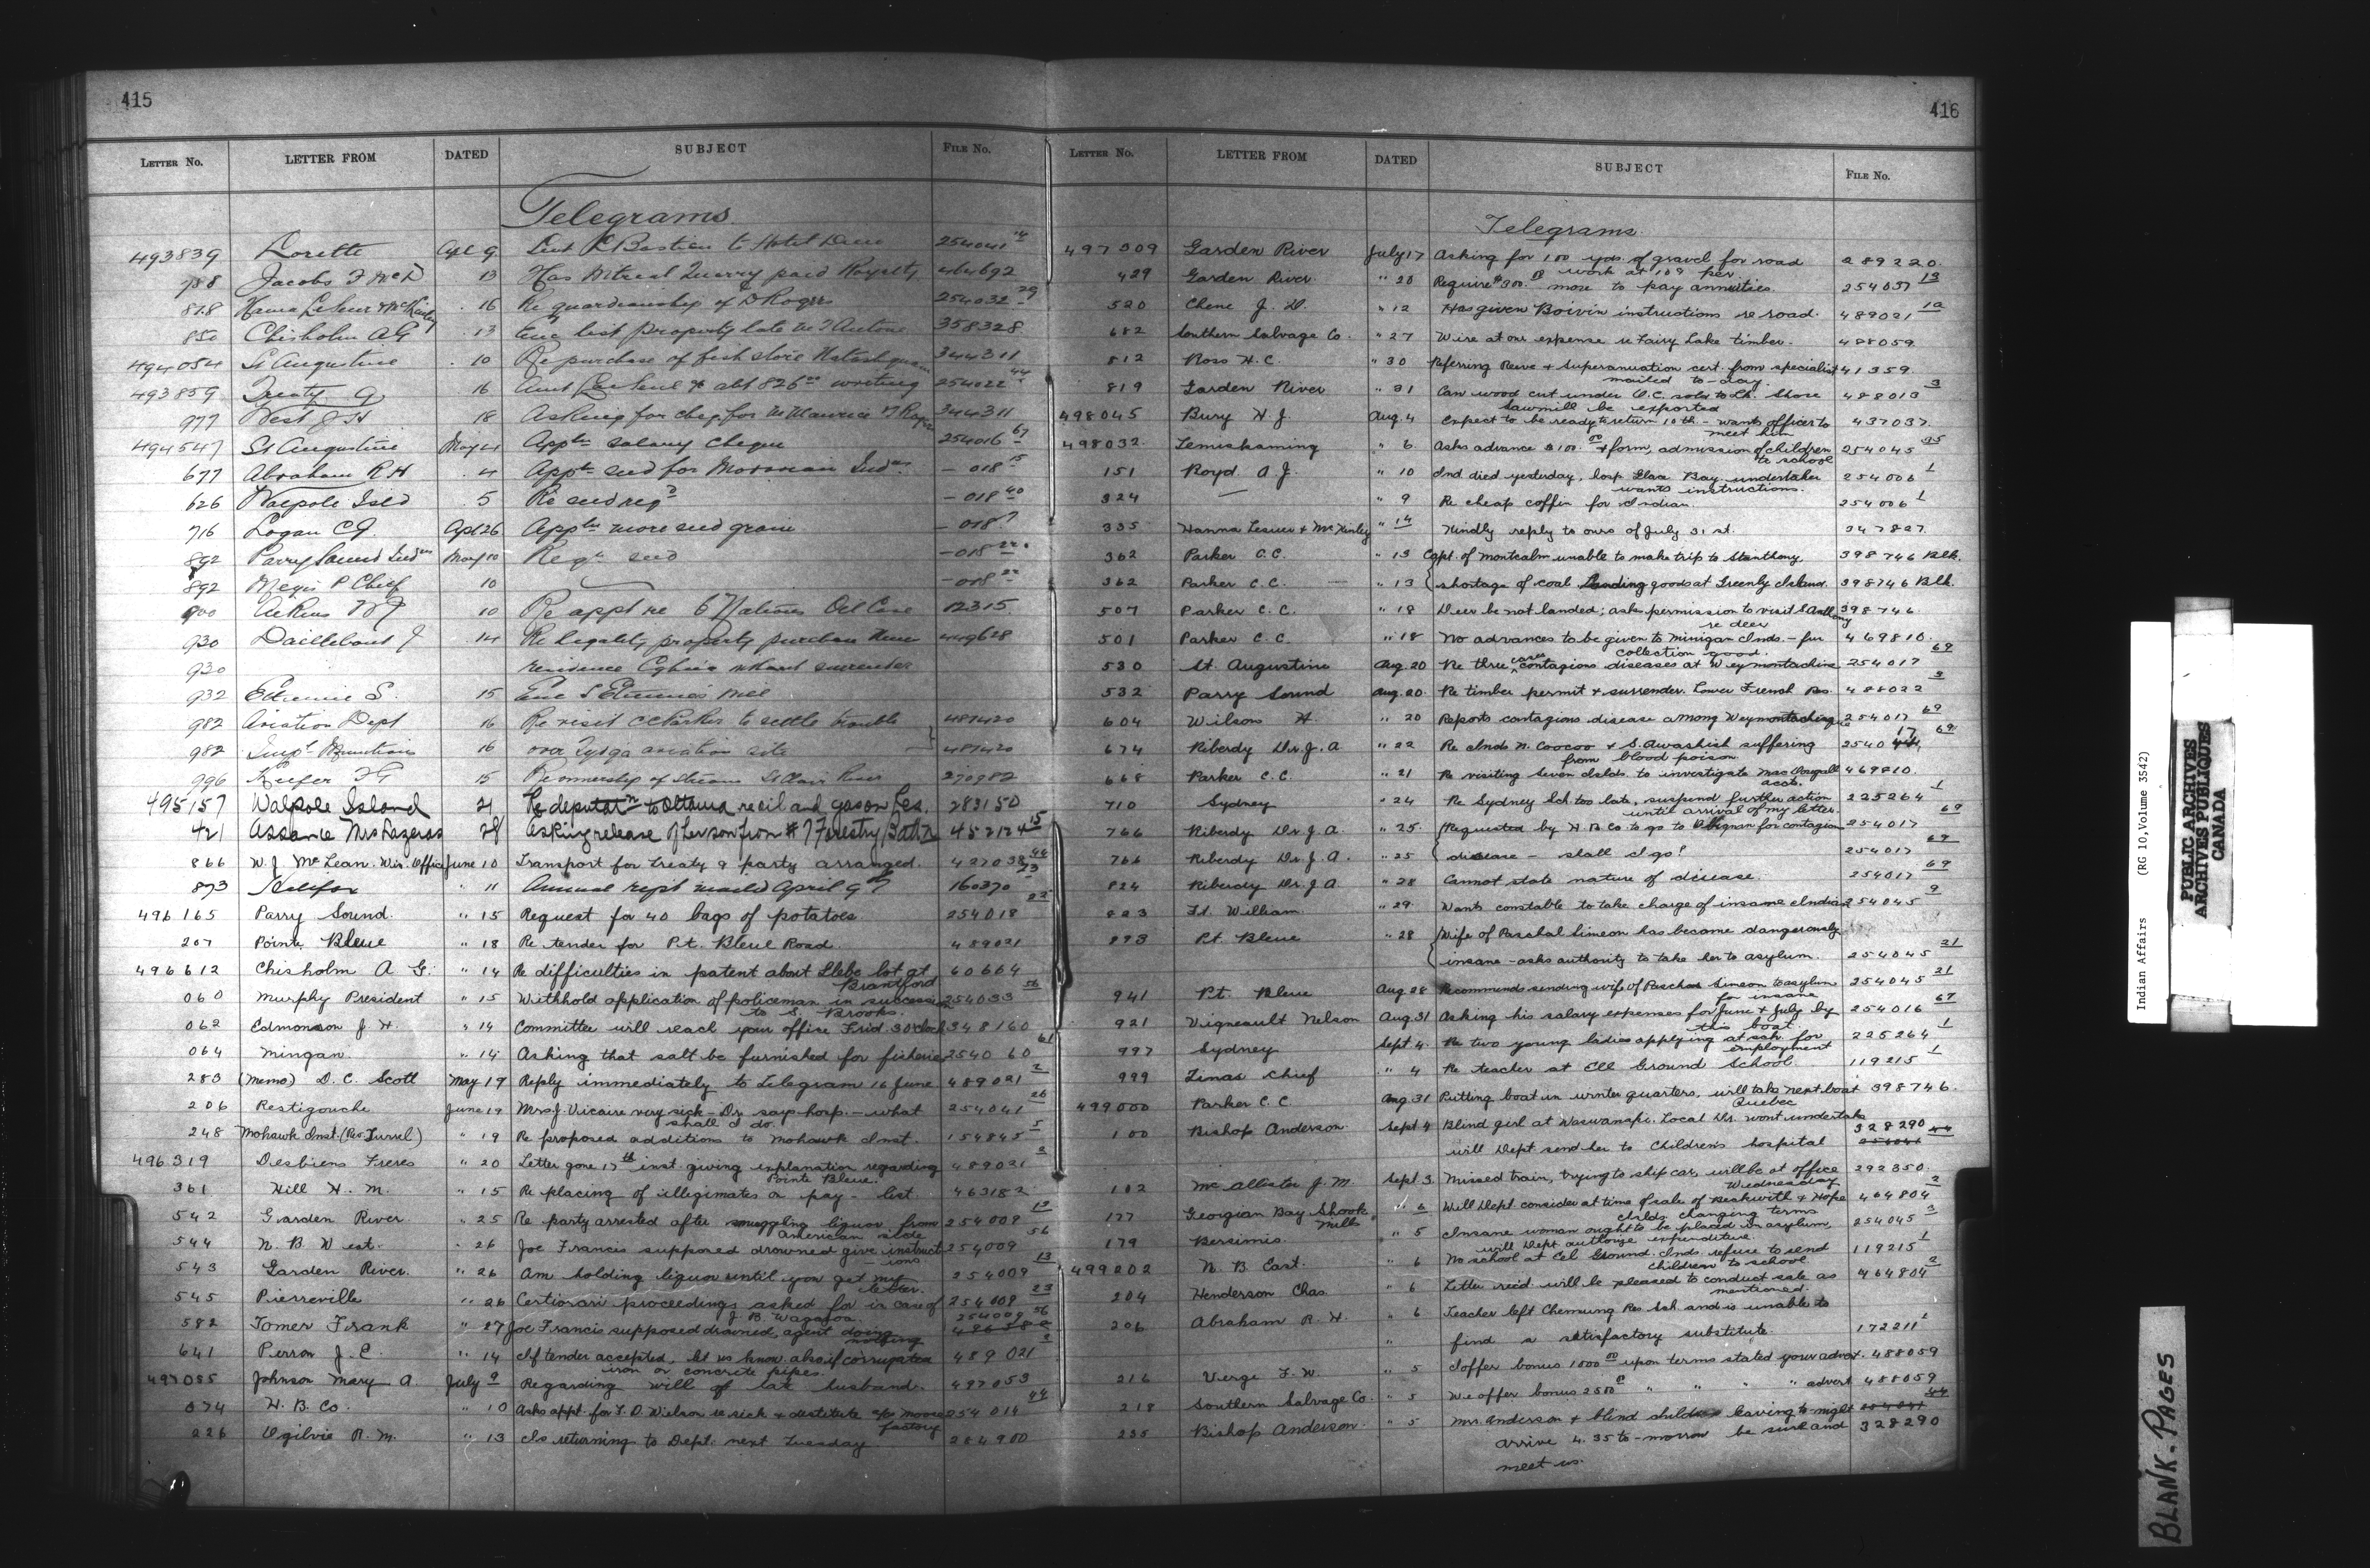 415
LETTER No. LETTER FROM DATED SUBJECT FILE No.
Telegrams
493839 Lorette Apl 9 P Bastien to Hotel Dieu 254041
788 Jacobs F McD 13 Has Mitreal Quarry paid Royalty 464692
818 16 Re guardianship of D Rogers 254032 29
850 Chisholm A G 13 property late 358328
494054 St Augustine 10 Re purchase of fish store 344311
493859 Treaty 9 16 254022
977 West J H 18 Asking for 344311
494547 St Augustine May 4 Appln salary cheque 254016 67
677 Abraham R H 4 Appln seed for Moravian Inds. — 018 15
626 Walpole Isld 5 Re seed reqd — 018 40
716 Logan C G. Apl 26 Appln more seed grain — 018 7
892 Parry Sound May 10 Reqn seed — 018 22
892 Megis P Chief 10 — 018 22
900 10 Re appt re 6 Nations Oil Case 12315
930 Daillebout J 14 Re legality property purchase 449628
930 residence without surrender
932 Etienne S. 15 S Etienne's will
982 Aviation Dept 16 Re visit C C Parker to settle trouble 487420
982 Supt 16 over aviation site 487420
996 Keefer F G 15 Re ownership of St Clair River 270982
495157 Walpole Island 21 Re deputatn to Ottawa re oil and gas on Res. 283150
421 Assance Mrs Lazarus 28 Asking release of her son from # 7 Forestry Battn 452124 15
866 W. J. McLean. Win. Office June 10 Transport for treaty 9 party arranged. 427038
873 Halifax " 11 Annual rept mailed April 9th 160370 23
496165 Parry Sound. " 15 Request for 40 bags of potatoes 254018 22
207 Pointe Bleue " 18 Re tender for Pt. Bleue Road. 489021
496612 Chisholm A G. " 14 Re difficulties in patent about Glebe lot at 60664
Brantford
060 Murphy President " 15 Withhold application of policeman in succession 254033 56
to S. Brooks.
062 Edmonson J. H. " 14 Committee will reach your office Frid. 3 O'clock 348160
064 Mingan " 14 Asking that salt be furnished for fisheries 254060 61
283 (Memo) D. C. Scott May 19 Reply immediately to telegram 16 June 489021 2
206 Restigouche June 19 Mrs J. Vicaire very sick - Dr. says hosp. - what 254041 26
shall I do.
248 Mohawk Inst. (Rev Turrel) " 19 Re proposed additions to Mohawk Inst. 154845 5
496319 Desbiens Freres " 20 Letter gone 17th inst. giving explanation regarding 489021 2
Pointe Bleue.
361 Hill H. M. " 15 Re placing of illegimates on pay - list. 463182
542 Garden River " 25 Re party arrested after smuggling liquor from 254009 13
American side
544 N. B. West. " 26 Joe Francis supposed drowned give instruct 254009 56
ions
543 Garden River. " 26 Am holding liquor until you get my 254009 13
letter.
545 Pierreville " 26 Certiorari proceedings asked for in case of 254009 23
J. B. Wagaroa.
582 Tomer Frank " 27 Joe Francis supposed drowned, agent doing 254009 56
nothing
641 Perron J. E. " 14 If tender accepted, let us know. also if corrugated 489021 2
iron or concrete pipes.
497085 Johnson Mary A July 9 Regarding will of late husband. 497053
074 H. B. Co. " 10 Asks appt. for F. D. Wilson re sick & destitute at Moose 254014 44
factory
226 Ogilvie R. M. " 13 Is returning to Dept. next Tuesday 284900
416
LETTER No. LETTER FROM DATED SUBJECT FILE No.
Telegrams
497309 Garden River July 17 Asking for 100 yds. of gravel for road 289220.
work at 10 9 per
429 Garden River. " 20 Require $300.00 more to pay annuities. 254057 13
520 Chene J. D. " 12 Has given Boivin instructions re road. 489021 1a
682 Southern Salvage Co. " 27 Wire at our expense re Fairy Lake timber. 488059
812 Ross H. C. " 30 Referring Reeve & Superanuation cert. from specialist 41359.
mailed to-day.
819 Garden River " 31 Can wood cut under O.C. sold to Lk. Shore 488013 3
Sawmill be exported
498045 Bury H. J. Aug. 4 Expect to be ready to return 10th - wants officer to 437037.
meet him
498032 Temiskaming " 6. Asks advance $100.00 & form, admission of children 254045 35
to school
151 Boyd A. J. " 10 Ind died yesterday, hosp. Glace Bay, undertaker 254006 1
wants instructions.
324 — " 9 Re cheap coffin for Indian. 254006 1
335 Hanna Lesuer & McKinley " 14 Kindly reply to ours of July 31 st. 347827.
362 Parker C. C. " 13 Capt. of Montcalm unable to make trip to St anthony 398746 Blk.
362 Parker C. C. — " 13 shortage of coal. Landing goods at Greenly Island. 398746 Blk.
507 Parker C. C. " 18 Deer be not landed; asks permission to visit S Anthony 398746.
re deer
501 Parker C. C. " 18 No advances to be given to Minigan Inds. - fur 469810.
collection good.
530 St. Augustine Aug. 20 Re three cases contagious diseases at Weymontachine 254017 69
532 Parry Sound Aug. 20. Re timber permit & surrender. Lower French Res. 488022 3
604 Wilson H. " 20 Reports contagious disease among Weymontachingue 254017 69
674 Riberdy Dr. J. A " 22 Re Inds N. Coocoo & S. Awashish suffering 254017 69
from blood poison.
668 Parker C. C. " 21 Re visiting Seven Islds. to investigate MacDougall 469810.
accts.
710 Sydney " 24 Re Sydney Sch. too late, suspend further action 225264 1
until arrival of my letter.
766 Riberdy Dr. J. A. " 25. Requested by H B Co to go to for contagion 254017 69
766 Riberdy Dr. J. A. " 25 disease - shall I go? 254017 69
824 Riberdy Dr. J. A. " 28 Cannot state nature of disease. 254017 69
823 Ft. William. " 29. Wants constable to take charge of insane Indian 254045 9
893 Pt. Bleue " 28 Wife of Paschal Simeon has become dangerously
insane - asks authority to take her to asylum. 254045 21
941 Pt. Bleue Aug 28 Recommends sending wife of Paschal Simeon to asylum 254045 21
for insane
921 Vigneault Nelson Aug. 31 Asking his salary expenses for June & July by 254016 67
this boat.
997 Sydney Sept 4. Re two young ladies applying at sch. for 225264 1
employment
999 Linas Chief " 4 Re teacher at Eel Ground School. 119215 1
499000 Parker C. C. Aug. 31 Putting boat in winter quarters, will take next boat 398746.
Quebec
100 Bishop Anderson. Sept 4 Blind girl at Waswanapi. Local Dr. wont undertake
will Dept send her to Children's hospital 328290
102 McAllister J. M. Sept 3. Missed train, trying to ship car, will be at office 292350.
Wednesday
177 Georgian Bay Shook " 6 Will Dept consider at time of sale of Beskwith & Hope 464804 2
Mills Islds. changing terms
179 Bersimis. " 5 Insane woman ought to be placed in asylum, 254045 3
will Dept. authorize expenditure.
499202 N. B. East. " 6 No school at Eel Ground. Inds. refuse to send 119215 1
children to school
204 Henderson Chas. " 6 Letter recd. will be pleased to conduct sale as 464804 2
mentioned.
206 Abraham R. H. " 6 Teacher left Chemung Res. Sch. and is unable to
" find a satisfactory substitute. 172211 1
216 Verge F. W. " 5 I offer bonus 1000.00 upon terms stated your advert. 488059
218 Southern Salvage Co. " 5 We offer bonus 2500 " " " " advert 488059
235 Bishop Anderson. " 5 Mrs. Anderson & blind child leaving to-night
arrive 4.35 to-morrow be sure and 328290
meet us.
Indian Affairs (RG 10, Volume 3542)
PUBLIC ARCHIVES
ARCHIVES PUBLIQUES
CANADA
BLANK. PAGES